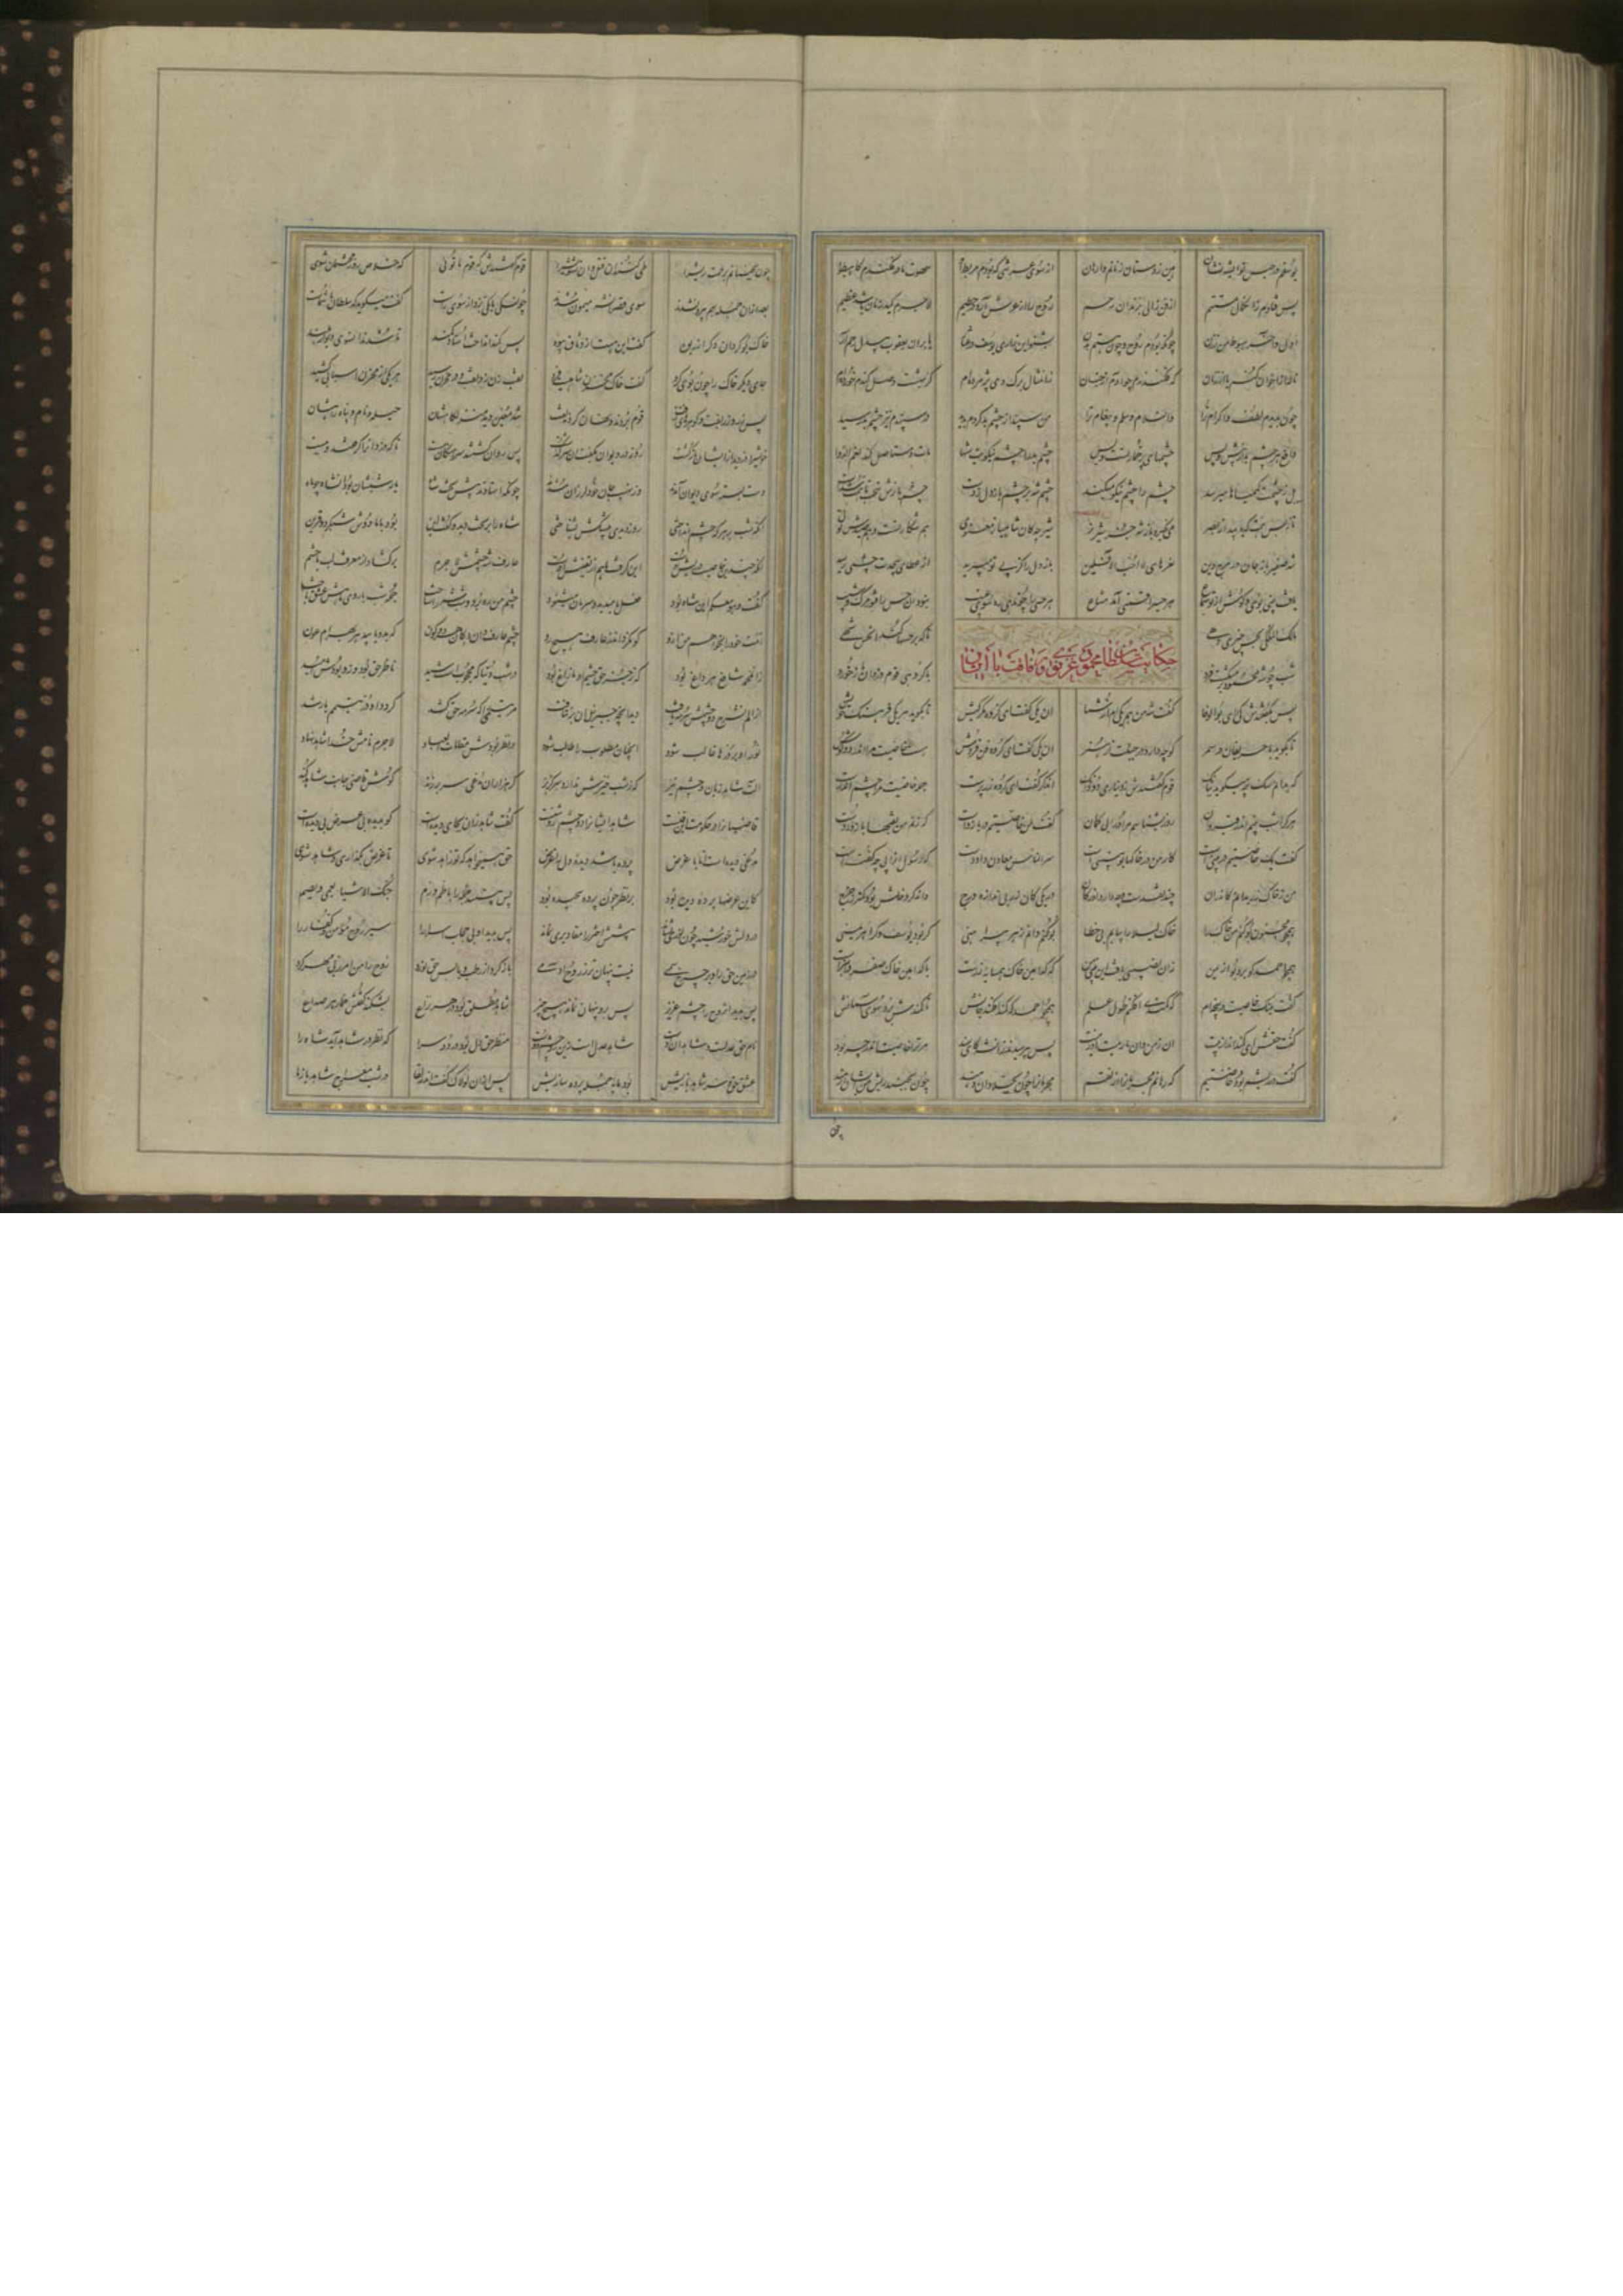 یوسفم در حبس تو ای شه نشان هین ز دستان زنانم وارهان از سوی عرشی که بودم مربط او شهوت مادر فکندم کاهبطوا
پس فتادم زان کمال مستتم از فن زالی بزندان رحم روح را از عرش آرد در حطیم لاجرم کید زنان باشد عظیم
اول و آخر هبوط من ز زن چونکه بودم روح و چون گشتم بدن بشنو این زاری یوسف در عثار یا بران یعقوب بیدل رحم آر
ناله از اخوان کنم یا از زنان که فکندندم چو آدم از جنان زان مثال برگ دی پژمرده‌ام کز بهشت وصل گندم خورده‌ام
چون بدیدم لطف و اکرام ترا وان سلام و سلم و پیغام ترا من سپند از چشم بد کردم پدید در سپندم نیز چشم بد رسید
دافع هر چشم بد از پیش و پس چشمهای پر خمار تست و بس چشم بد را چشم نیکویت شها مات و مستاصل کند نعم الدوا
بل ز چشمت کیمیاها میرسد چشم بد را چشم نیکو میکند چشم شه بر چشم باز دل زدست چشم بازش سخت با همت شدست
تا ز بس همت که یابید از نظر می نگیرد باز شه جز شیر نر شیر چه کان شاهباز معنوی هم شکار تست و هم صیدش توی
شد صفیر باز جان در مرج دین نعرهای لا احب الآفلین باز دل را کز پی تو میپرید از عطای بیحدت چشمی رسید
یافت بینی بوی و گوش از تو سماع هر حسی را قسمتی آمد مشاع هر حسی را چون دهی ره سوی غیب نبود آن حس را فتور مرگ و شیب
مالک الملکی بحس چیزی دهی تا که بر حسها کند آن حس شهی
حکایت سلطان محمود غزنوی و رفاقت با دزدان
شب چو شه محمود برمیگشت فرد با گروهی قوم دزدان باز خورد
پس بگفتندش کئی ای بوالوفا گفت شه من هم یکی ام از شما آن یکی گفت ای گروه مکرکیش تا بگوید هر یکی فرهنگ خویش
تا بگوید با حریفان در سمر کو چه دارد در جبلت از هنر آن یکی گفت ای گروه فن فروش هست خاصیت مرا اندر دو گوش
که بدانم سگ چه میگوید ببانگ قوم گفتندش ز دیناری دو دانگ آن دگر گفت ای گروه زرپرست جمله خاصیت مرا چشم اندرست
هر کرا شب بینم اندر قیروان روز بشناسم مر او را بی گمان گفت یک خاصیتم در بازو است که زنم من نقبها با زور دست
گفت یک خاصیتم در بینی است کار من در خاکها بوبینی است سر الناس معادن داد دست که رسول آنرا پی چه گفته است
من ز خاک تن بدانم کاندران چند نقدست و چه دارد او ز کان در یکی کان زر بی اندازه درج وان دگر دخلش بود کمتر ز خرج
همچو مجنون بو کنم من خاک را خاک لیلی را بیابم بی خطا بو کنم دانم ز هر پیراهنی گر بود یوسف و گر آهرمنی
همچو احمد که برد بو از یمن زان نصیبی یافت این بینی من که کدامین خاک همسایه زرست یا کدامین خاک صفر و ابترست
گفت یک خاصیت در پنجه‌ام که کمندی افکنم طول علم همچو احمد که کمند افکند جانش تا کمندش برد سوی آسمانش
گفت حقش ای کمند انداز بیت آن ز من دان ما رمیت اذ رمیت پس بپرسیدند زان شه کای سند مر ترا خاصیت اندر چه بود
گفت در ریشم بود خاصیتم که رهانم مجرمان را از نقم مجرمان را چون بجلادان دهند چون بجنبد ریش من ایشان رهند
چون بجنبانم برحمت ریش را طی کنند آن قتل و آن تشویش را قوم گفتندش که قطب ما توئی که خلاص روز محنتمان شوی
بعد ازان جمله بهم بیرون شدند سوی قصر آن شه میمون شدند چون سگی بانگی بزد از سوی راست گفت میگوید که سلطان با شماست
خاک بو کرد آن دگر از ربوه گفت این هست از وثاق بیوه پس کمند انداخت استاد کمند تا شدند آن سوی دیوار بلند
جای دیگر خاک را چون بوی کرد گفت خاک مخزن شاهیست فرد نقب زن زد نقب و در مخزن رسید هر یکی از مخزن اسبابی کشید
بس زر و زربفت و گوهرهای زفت قوم بردند و نهان کردند تفت شه معین دید منزلگاهشان حلیه و نام و پناه و راهشان
خویش را دزدید از ایشان بازگشت روز در دیوان بگفت آن سرگذشت پس روان گشتند سرهنگان مست تا که دزدان را گرفتند و ببست
دست بسته سوی دیوان آمدند وز نهیب جان خود لرزان شدند چونکه استادند پیش تخت شاه یار شبشان بود آن شاه چو ماه
آنکه شب بر هر که چشم انداختی روز دیدی بی شکش بشناختی شاه را بر تخت دید و گفت این بود با ما دوش شبگرد و قرین
آنکه چندین خاصیت در ریش اوست این گرفت ما هم از تفتیش اوست عارف شه بود چشمش لاجرم برگشاد از معرفت لب با حشم
گفت و هو معکم این شاه بود فعل ما میدید و سرمان میشنود چشم من ره برد و شب شه را شناخت جمله شب با روی ماهش عشق باخت
امت خود را بخواهم من ازو کو نگرداند ز عارف هیچ رو چشم عارف دان امان هر دو کون که بدو یابید هر بهرام عون
زان محمد شافع هر داغ بود که ز جز حق چشم او مازاغ بود در شب دنیا که محجوبست شید ناظر حق بود و زو بودش امید
از الم نشرح دو چشمش سرمه یافت دید آنچه جبرئیل آن برنتافت مر یتیمی را که سرمه حق کشد گردد او در یتیم با رشد
نور او بر ذره‌ها غالب شود آنچنان مطلوب را طالب شود در نظر بودش مقامات العباد لاجرم نامش خدا شاهد نهاد
آلت شاهد زبان و چشم تیز که ز شب خیزش ندارد سر گریز گر هزاران مدعی سر برزند گوش قاضی جانب شاهد کند
قاضیانرا در حکومت این فنست شاهد ایشانرا دو چشم روشنست گفت شاهد زان بجای دیده است کو بدیده بی غرض دیده است
مدعی دیده است اما با غرض پرده باشد دیده دل را غرض حق همیخواهد که تو زاهد شوی تا غرض بگذاری و شاهد شوی
کاین غرضها پرده دیده بود بر نظر چون پرده پیچیده بود پس نبیند جمله را با طم و رم حبک الاشیاء یعمی و یصم
در دلش خورشید چون نوری نشاند پیشش اختر را مقادیری نماند پس بدید او بی حجاب اسرار را سیر روح مؤمن و کفار را
در زمین حق را و در چرخ سمی نیست پنهان تر ز روح آدمی باز کرد از رطب و یابس حق نورد روح را من امر ربی مهر کرد
پس بدید آن روح را چشم عزیز پس برو پنهان نماند هیچ چیز شاهد مطلق بود در هر نزاع بشکند گفتش خمار هر صداع
نام حق عدلست و شاهد آن اوست شاهد عدلست زین رو چشم دوست منظر حق دل بود در دو سرا که نظر در شاهد آید شاه را
عشق حق و سر شاهد بازیش بود مایه جمله پرده سازیش پس ازان لولاک گفت اندر لقا در شب معراج شاهد باز ما